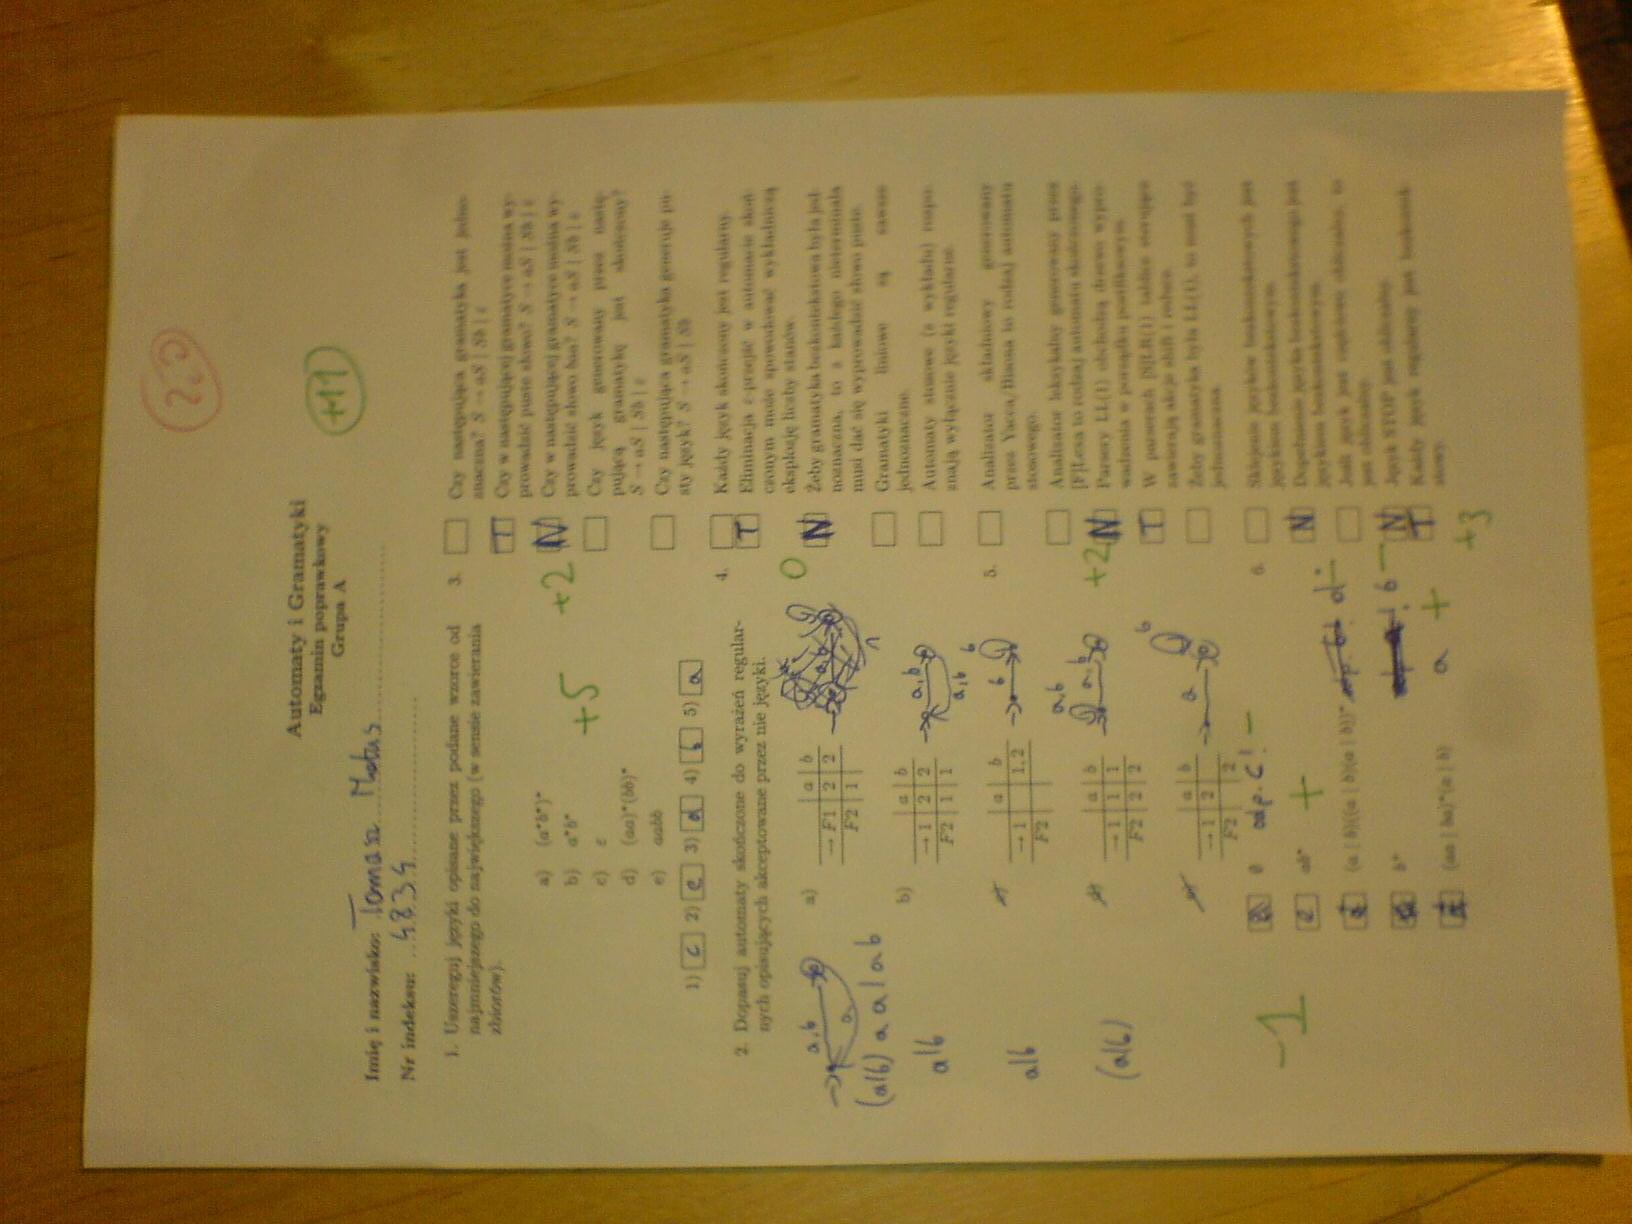 2.0
+11
Automaty i Gramatyki
Egzamin poprawkowy
Grupa A
Imię i nazwisko: Tomasz Matus
Nr indeksu: 4834
1. Uszereguj języki opisane przez podane wzorce od
najmniejszego do największego (w sensie zawierania
zbiorów).
a) (a*b*)*
b) a*b*
c) ε
d) (aa)*(bb)*
e) aabb
+5
1) c 2) e 3) d 4) b 5) a
2. Dopasuj automaty skończone do wyrażeń regular-
nych opisujących akceptowane przez nie języki.
a)
a b
→ F1 2 2
F2 1
a, b
a
(a|b) a a | a b
b)
a b
→ 1 2 2
F2 1 1
a, b
a, b
a|b
a b
→ 1 1, 2
F2
b
b
a|b
a b
→ 1 1 1
F2 2 2
a, b
a, b
(a|b)
a b
→ 1 2
F2 2
a
b
∅ odp. c! −
e ab* +
(a | b)((a | b)(a | b))* d −
b* b −
(aa | ba)*(a | b) a +
-1
3. +2
Czy następująca gramatyka jest jedno-
znaczna? S → aS | Sb | ε
T Czy w następującej gramatyce można wy-
prowadzić puste słowo? S → aS | Sb | ε
N Czy w następującej gramatyce można wy-
prowadzić słowo baa? S → aS | Sb | ε
Czy język generowany przez nastę-
pującą gramatykę jest skończony?
S → aS | Sb | ε
Czy następująca gramatyka generuje pu-
sty język? S → aS | Sb
4. 0
Każdy język skończony jest regularny.
T Eliminacja ε-przejść w automacie skoń-
czonym może spowodować wykładniczą
eksplozję liczby stanów.
N Żeby gramatyka bezkontekstowa była jed-
noznaczna, to z każdego nieterminala
musi dać się wyprowadzić słowo puste.
Gramatyki liniowe są zawsze
jednoznaczne.
Automaty stosowe (z wykładu) rozpo-
znają wyłącznie języki regularne.
5. +2
Analizator składniowy generowany
przez Yacca/Bisona to rodzaj automatu
stosowego.
Analizator leksykalny generowany przez
[F]Lexa to rodzaj automatu skończonego.
N Parsery LL(1) obchodzą drzewo wypro-
wadzenia w porządku postfiksowym.
T W parserach [S]LR(1) tablice sterujące
zawierają akcje shift i reduce.
Żeby gramatyka była LL(1), to musi być
jednoznaczna.
6.
Sklejenie języków bezkontekstowych jest
językiem bezkontekstowym.
N Dopełnienie języka bezkontekstowego jest
językiem bezkontekstowym.
Jeśli język jest częściowo obliczalny, to
jest obliczalny.
N Język STOP jest obliczalny.
T Każdy język regularny jest bezkontek-
stowy.
+3